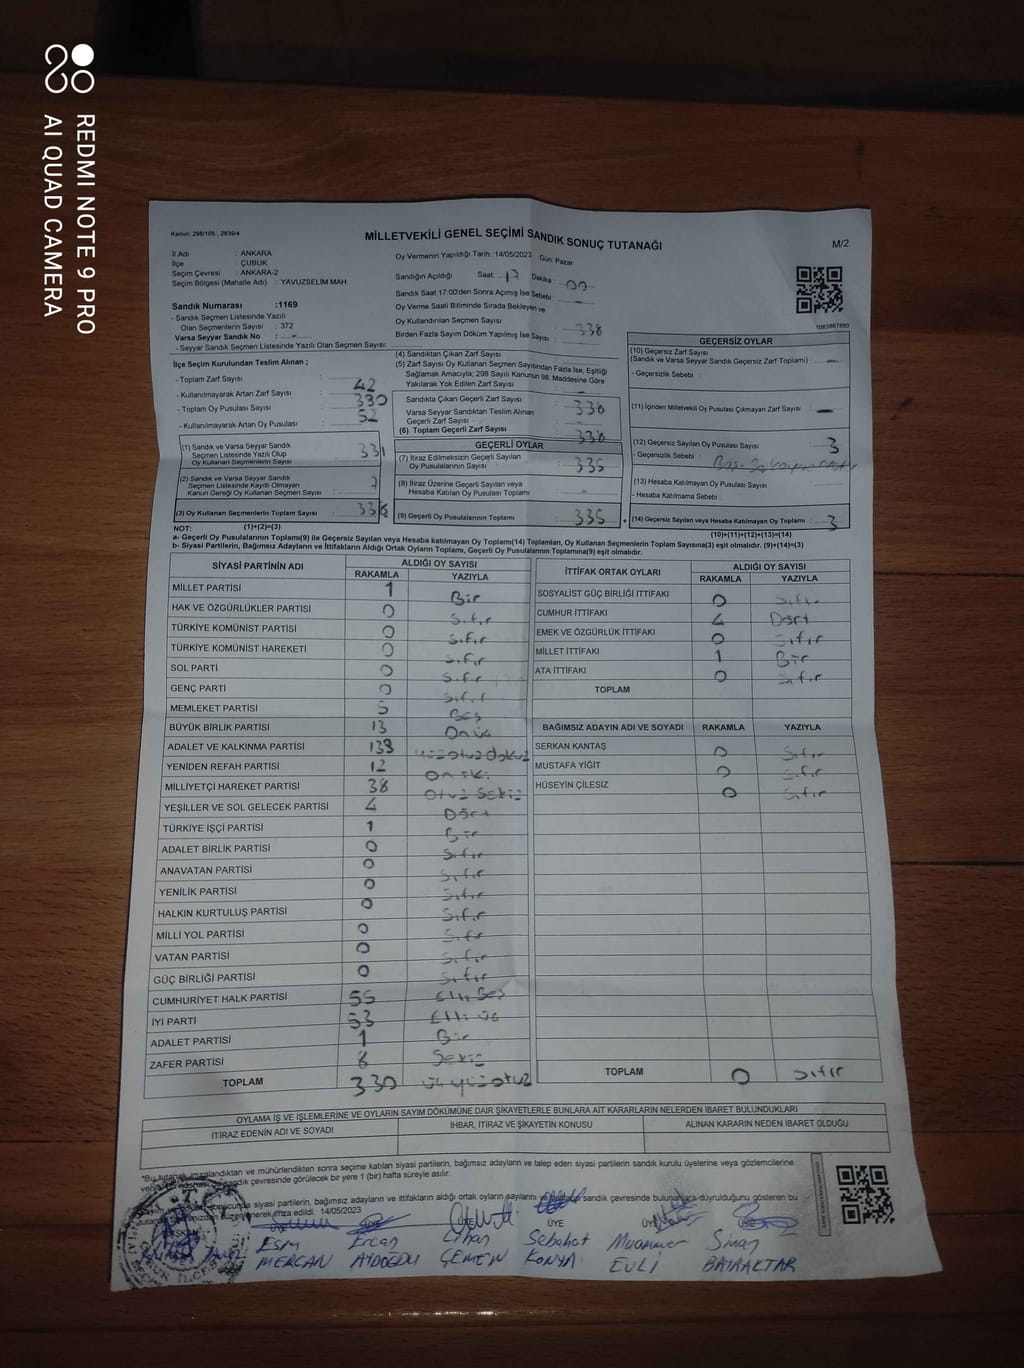 REDMI NOTE 9 PRO
AI QUAD CAMERA
Kanun; 298/105 , 2839/4
MİLLETVEKİLİ GENEL SEÇİMİ SANDIK SONUÇ TUTANAĞI
M/2
İl Adı : ANKARA
İlçe : ÇUBUK
Seçim Çevresi : ANKARA-2
Seçim Bölgesi (Mahalle Adı) : YAVUZSELİM MAH.
Sandık Numarası :1169
- Sandık Seçmen Listesinde Yazılı
Olan Seçmenlerin Sayısı : 372
Varsa Seyyar Sandık No : -
- Seyyar Sandık Seçmen Listesinde Yazılı Olan Seçmen Sayısı:
Oy Vermenin Yapıldığı Tarih :14/05/2023 Gün: Pazar
Sandığın Açıldığı Saat: 17 Dakika: 00
Sandık Saat 17:00'den Sonra Açımış İse Sebebi: -
Oy Verme Saati Bitiminde Sırada Bekleyen ve
Oy Kullandırılan Seçmen Sayısı : 338
Birden Fazla Sayım Döküm Yapılmış İse Sayısı : -
İlçe Seçim Kurulundan Teslim Alınan ;
- Toplam Zarf Sayısı :
- Kullanılmayarak Artan Zarf Sayısı : 42
- Toplam Oy Pusulası Sayısı : 330
- Kullanılmayarak Artan Oy Pusulası : 52
(1) Sandık ve Varsa Seyyar Sandık
Seçmen Listesinde Yazılı Olup
Oy Kullanan Seçmenlerin Sayısı : 331
(2) Sandık ve Varsa Seyyar Sandık
Seçmen Listesinde Kayıtlı Olmayan
Kanun Gereği Oy Kullanan Seçmen Sayısı : 7
(3) Oy Kullanan Seçmenlerin Toplam Sayısı : 338
(4) Sandıktan Çıkan Zarf Sayısı :
(5) Zarf Sayısı Oy Kullanan Seçmen Sayısından Fazla İse, Eşitliği
Sağlamak Amacıyla; 298 Sayılı Kanunun 98. Maddesine Göre
Yakılarak Yok Edilen Zarf Sayısı :
Sandıkta Çıkan Geçerli Zarf Sayısı : 338
Varsa Seyyar Sandıktan Teslim Alınan
Geçerli Zarf Sayısı : -
(6) Toplam Geçerli Zarf Sayısı : 338
GEÇERLİ OYLAR
(7) İtiraz Edilmeksizin Geçerli Sayılan
Oy Pusulalarının Sayısı : 335
(8) İtiraz Üzerine Geçerli Sayılan veya
Hesaba Katılan Oy Pusulası Toplamı : -
(9) Geçerli Oy Pusulalarının Toplamı : 335
1083867880
GEÇERSİZ OYLAR
(10) Geçersiz Zarf Sayısı
(Sandık ve Varsa Seyyar Sandık Geçersiz Zarf Toplamı) : -
- Geçersizlik Sebebi :
(11) İçinden Milletvekili Oy Pusulası Çıkmayan Zarf Sayısı : -
(12) Geçersiz Sayılan Oy Pusulası Sayısı : 3
- Geçersizlik Sebebi :
(13) Hesaba Katılmayan Oy Pusulası Sayısı :
- Hesaba Katılmama Sebebi :
(14) Geçersiz Sayılan veya Hesaba Katılmayan Oy Toplamı : 3
(10)+(11)+(12)+(13)=(14)
NOT: (1)+(2)=(3)
a- Geçerli Oy Pusulalarının Toplamı(9) ile Geçersiz Sayılan veya Hesaba Katılmayan Oy Toplamı(14) Toplamları, Oy Kullanan Seçmenlerin Toplam Sayısına(3) eşit olmalıdır. (9)+(14)=(3)
b- Siyasi Partilerin, Bağımsız Adayların ve İttifakların Aldığı Ortak Oyların Toplamı, Geçerli Oy Pusulalarının Toplamına(9) eşit olmalıdır.
SİYASİ PARTİNİN ADI ALDIĞI OY SAYISI
RAKAMLA YAZIYLA
MİLLET PARTİSİ 1 Bir
HAK VE ÖZGÜRLÜKLER PARTİSİ 0 Sıfır
TÜRKİYE KOMÜNİST PARTİSİ 0 Sıfır
TÜRKİYE KOMÜNİST HAREKETİ 0 Sıfır
SOL PARTİ 0 Sıfır
GENÇ PARTİ 0 Sıfır
MEMLEKET PARTİSİ 5 Beş
BÜYÜK BİRLİK PARTİSİ 13 Onüç
ADALET VE KALKINMA PARTİSİ 139 yüzotuzdokuz
YENİDEN REFAH PARTİSİ 12 Oniki
MİLLİYETÇİ HAREKET PARTİSİ 38 Otuz Sekiz
YEŞİLLER VE SOL GELECEK PARTİSİ 4 Dört
TÜRKİYE İŞÇİ PARTİSİ 1 Bir
ADALET BİRLİK PARTİSİ 0 Sıfır
ANAVATAN PARTİSİ 0 Sıfır
YENİLİK PARTİSİ 0 Sıfır
HALKIN KURTULUŞ PARTİSİ 0 Sıfır
MİLLİ YOL PARTİSİ 0 Sıfır
VATAN PARTİSİ 0 Sıfır
GÜÇ BİRLİĞİ PARTİSİ 0 Sıfır
CUMHURİYET HALK PARTİSİ 55 Elli Beş
İYİ PARTİ 53 Elli üç
ADALET PARTİSİ 1 Bir
ZAFER PARTİSİ 8 Sekiz
TOPLAM 330 üçyüzotuz
İTTİFAK ORTAK OYLARI ALDIĞI OY SAYISI
RAKAMLA YAZIYLA
SOSYALİST GÜÇ BİRLİĞİ İTTİFAKI 0 Sıfır
CUMHUR İTTİFAKI 4 Dört
EMEK VE ÖZGÜRLÜK İTTİFAKI 0 Sıfır
MİLLET İTTİFAKI 1 Bir
ATA İTTİFAKI 0 Sıfır
TOPLAM
BAĞIMSIZ ADAYIN ADI VE SOYADI RAKAMLA YAZIYLA
SERKAN KANTAŞ 0 Sıfır
MUSTAFA YİĞİT 0 Sıfır
HÜSEYİN ÇİLESİZ 0 Sıfır
TOPLAM 0 Sıfır
OYLAMA İŞ VE İŞLEMLERİNE VE OYLARIN SAYIM DÖKÜMÜNE DAİR ŞİKAYETLERLE BUNLARA AİT KARARLARIN NELERDEN İBARET BULUNDUKLARI
İTİRAZ EDENİN ADI VE SOYADI İHBAR, İTİRAZ VE ŞİKAYETİN KONUSU ALINAN KARARIN NEDEN İBARET OLDUĞU
"Bu tutanak imzalandıktan ve mühürlendikten sonra seçime katılan siyasi partilerin, bağımsız adayların ve talep eden siyasi partilerin sandık kurulu üyelerine veya gözlemcilerine
sandık çevresinde görülecek bir yere 1 (bir) hafta süreyle asılır.
siyasi partilerin, bağımsız adayların ve ittifakların aldığı ortak oyların sayılarını ve sandık çevresinde bulunanlara duyrulduğunu gösteren bu
imza edildi. 14/05/2023
ÜYE ÜYE ÜYE ÜYE
Esin Ercan Cihan Sebahat Muammer Sinan
MERCAN AYDOĞDU ÇEMEN KONYA EVLİ BAYRAKTAR